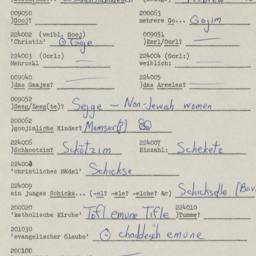 009050 200063
)Gooj? mehrere Go... Gojim
224002 (weibl. Gooj) 009051
'Christin' Goje )Karl/Gorl?
224003 (Gorl:) 224004 (Gorl:)
Mehrzahl weiblich:
009040 224005
)das Gaajes? )das Areles?
009052
)Seeg/Leeg(te)? Segge – Non-Jewish women
200062
goojinliche Kinder? Mamser(?)
224006 224007
)Schkootzim? Schötzim Einzahl: Scheketz
224008
'christliches Mädel' Schickse
224009
ein junges Schicks... (-el? -ele? -elche? &c) Schicksdle (Bav.
200020 224010
'katholische Kirche' Tofl emune Tifle )Tumme?
201030
'evangelischer Glaube' chaddesch emune